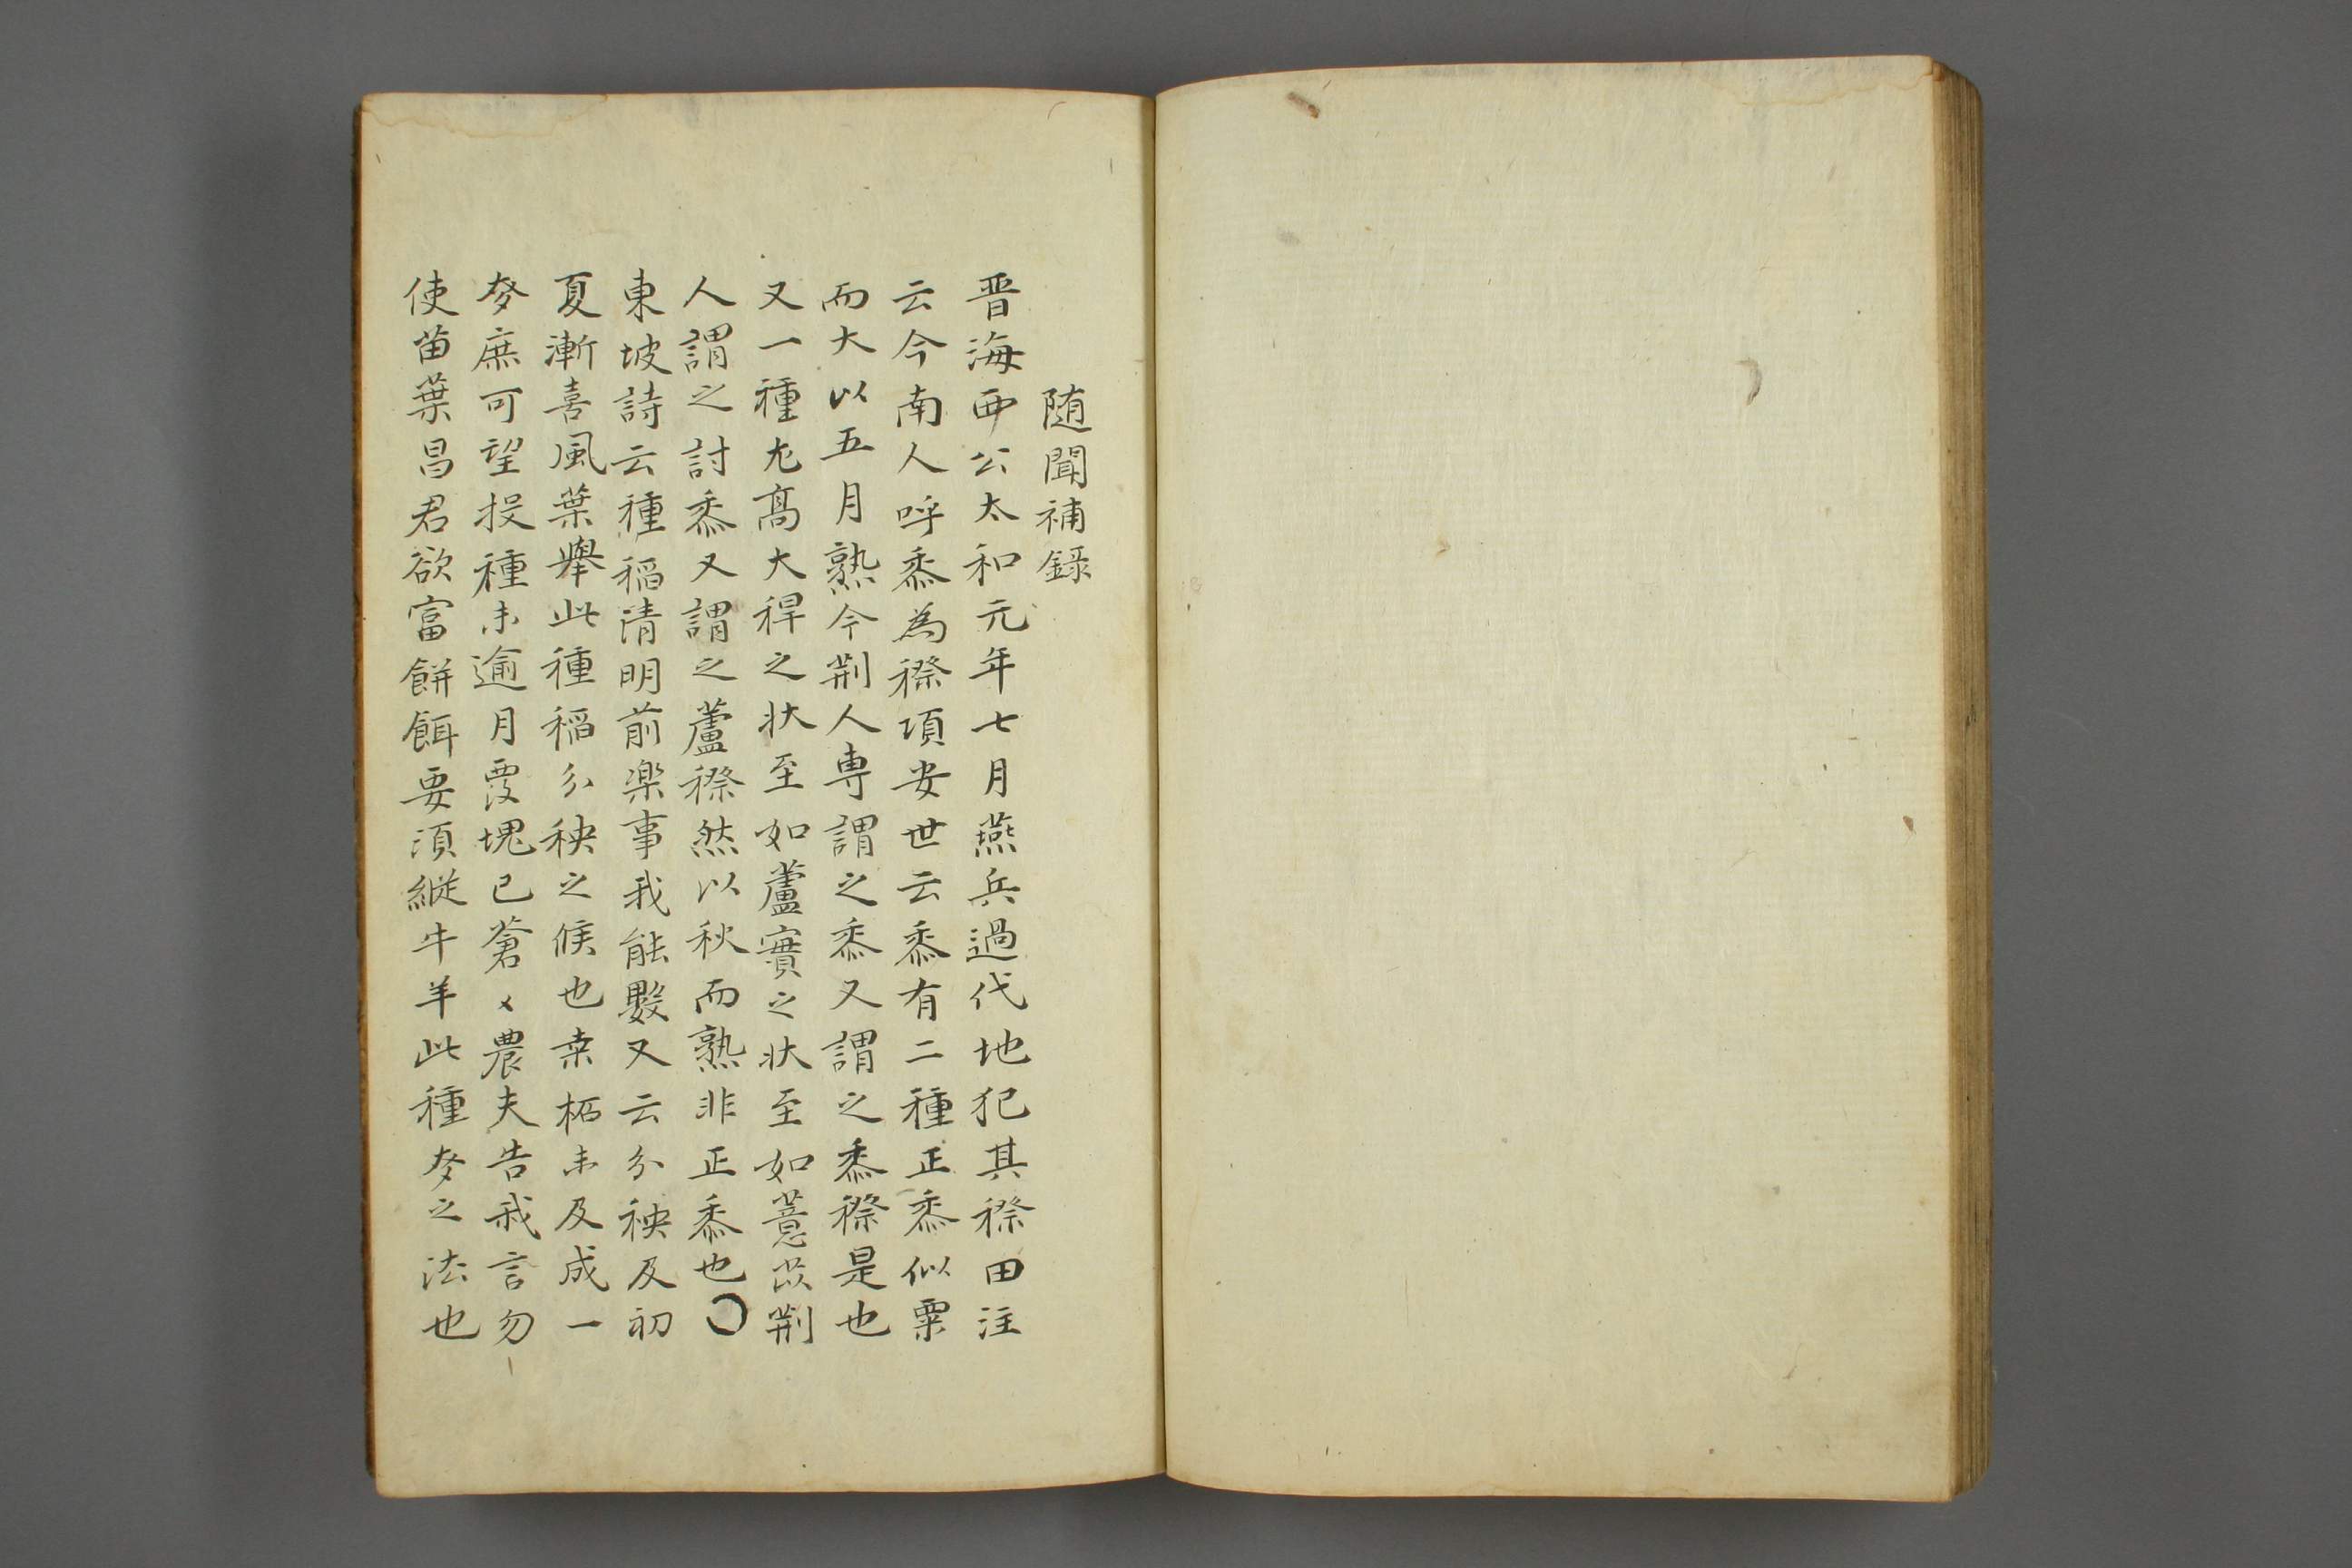 随聞補錄
晋海西公太和元年七月燕兵過代地犯其穄田注
云今南人呼黍為穄項安世云黍有二種正黍似粟
而大以五月熟今荆人専謂之黍又謂之黍穄是也
又一種尤髙大稈之状至如蘆實之状至如薏苡荆
人謂之討黍又謂之蘆穄然以秋而熟非正黍也〇
東坡詩云種稻清明前楽事我能數又云分秧及初
夏漸喜風葉舉此種稻分秧之候也桒柘未及成一
麥庶可望投種未逾月覆塊已蒼〻農夫告我言勿
使苗葉昌君欲富餅餌要湏縦牛羊此種麥之法也